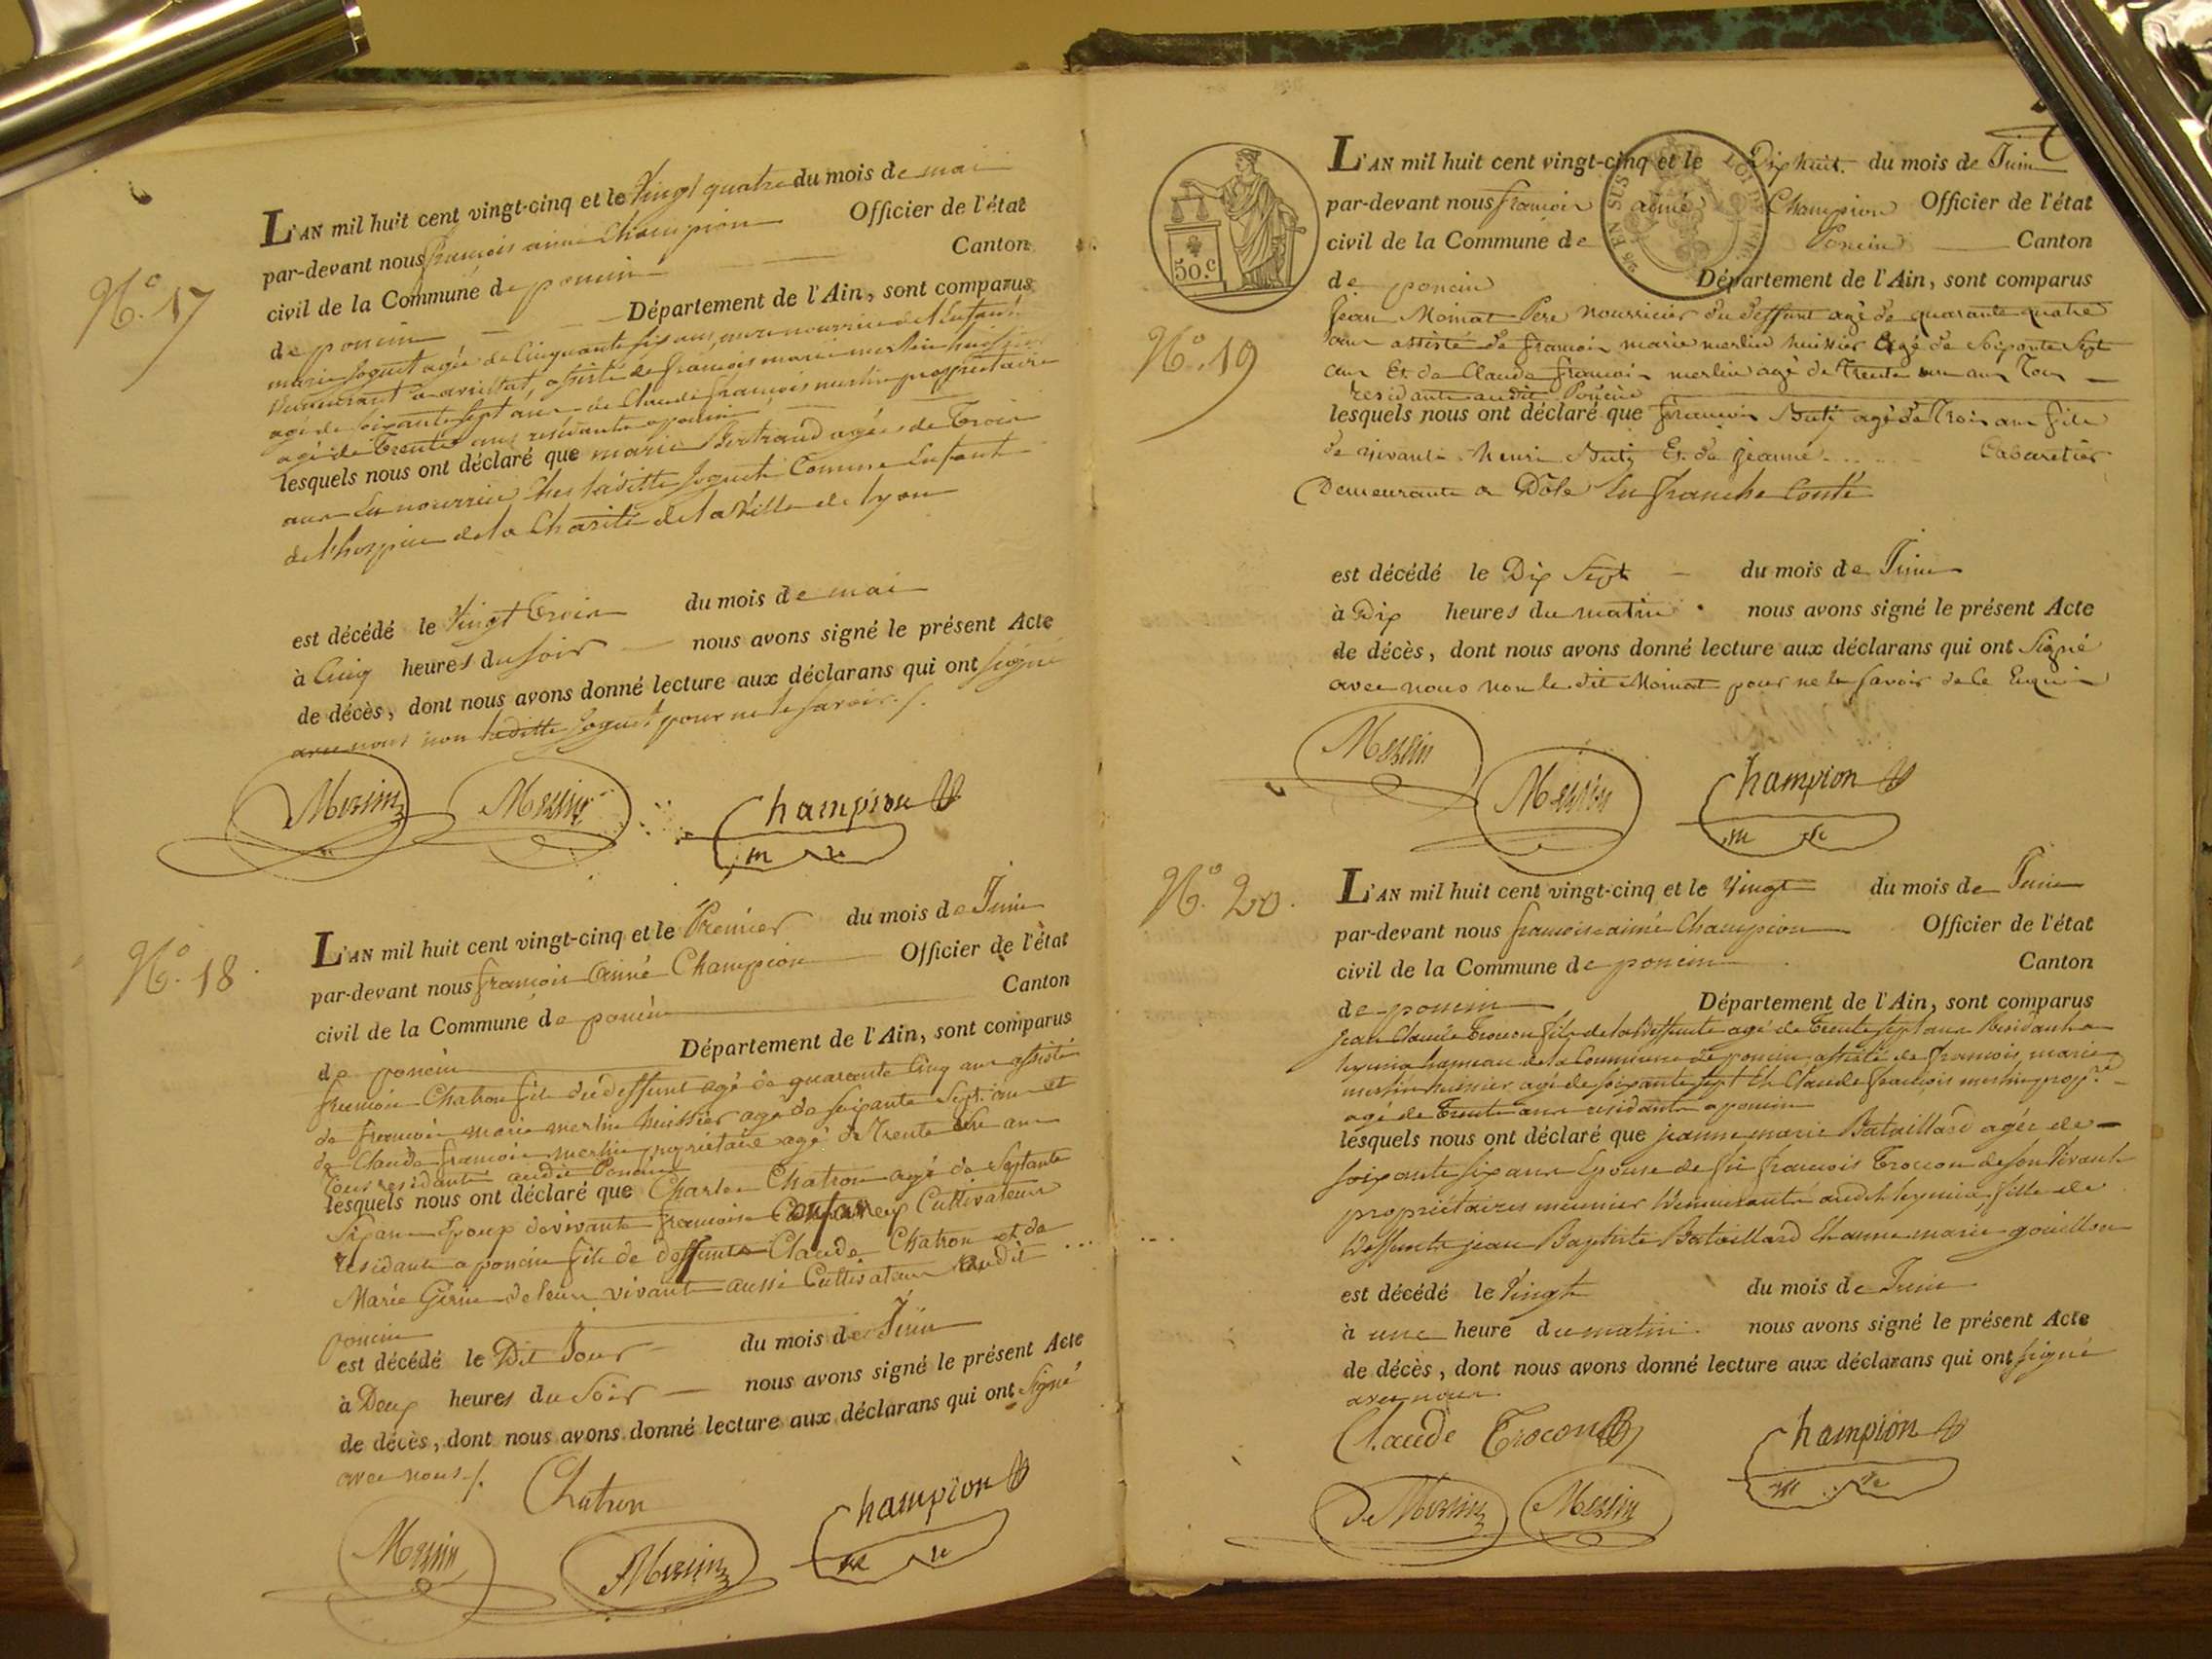 N.º 17
L'AN mil huit cent vingt-cinq et le Vingt quatre du mois de mai
par-devant nous françois aimé Champion Officier de l'état
civil de la Commune de poncin Canton
de poncin Département de l'Ain, sont comparus
marie Joguet agée de Cinquante six ans mere nourrice de l'enfant
Demeurant a avrillat, assisté de françois marie merlin huissier
agé de soixante sept ans de Claude françois merlin proprietaire
agé de Trente ans residants a poncin
lesquels nous ont déclaré que marie Bertrand agée de Trois
ans En nourrice Chez laditte Joguet Comme Enfant
de l'hospice de la Charité de la Ville de lyon
est décédé le Vingt Trois du mois de mai
à Cinq heures du soir nous avons signé le présent Acte
de décès, dont nous avons donné lecture aux déclarans qui ont signé
avec nous non laditte Joguet pour ne le savoir ./.
Merlin Merlin Champion
m re
N.º 18
L'AN mil huit cent vingt-cinq et le Premier du mois de Juin
par-devant nous françois Aimé Champion Officier de l'état
civil de la Commune de poncin Canton
de poncin Département de l'Ain, sont comparus
françois Chatron fils du deffunt agé de quarante Cinq ans assisté
de françois marie merlin huissier agé de soixante Sept ans et
de Claude françois merlin propriétaire agé de Trente un ans
Tous residants audit Poncin
lesquels nous ont déclaré que Charles Chatron agé de Septante
Six ans Epoux de vivante françoise Cultivateur
résidant a poncin fils de deffunts Claude Chatron et de
Marie Gérin de leurs vivants aussi Cultivateurs audit
poncin
est décédé le Dit Jour du mois de Juin
à Deux heures du Soir nous avons signé le présent Acte
de décès, dont nous avons donné lecture aux déclarans qui ont Signé
avec nous ./. Chatron
Merlin Merlin Champion
m re
50.c
N.º 19
L'AN mil huit cent vingt-cinq et le Dix huit du mois de Juin
par-devant nous françois aimé Champion Officier de l'état
civil de la Commune de Poncin Canton
de poncin Département de l'Ain, sont comparus
Jean Moinat Pere Nourricier du deffunt agé de quarante quatre
ans assisté de françois marie merlin huissier agé de Soixante Sept
ans Et de Claude françois merlin agé de Trente un ans Tous
résidants audit Poncin
lesquels nous ont déclaré que françois Buty agé de Trois ans fils
de vivants henri Buty Et de Jeanne .... Cabaretier
Demeurants a Dôle En franche Comté
est décédé le Dix Sept du mois de Juin
à Dix heures du matin nous avons signé le présent Acte
de décès, dont nous avons donné lecture aux déclarans qui ont Signé
avec nous non le dit Moinat pour ne le savoir de Ce Enquis
Merlin Merlin Champion
m re
N.º 20.
L'AN mil huit cent vingt-cinq et le Vingt du mois de Juin
par-devant nous françois aimé Champion Officier de l'état
civil de la Commune de poncin Canton
de poncin Département de l'Ain, sont comparus
Jean Claude Trocon fils de la deffunte agé de Trente sept ans Résidant a
leymia hameau de la Commune de poncin assisté de françois marie
merlin huissier agé de soixante sept Et Claude françois merlin propre
agé de Trente ans residants a poncin
lesquels nous ont déclaré que jeanne marie Bataillard agée de
soixante six ans Epouse de feu françois Trocon de son Vivant
propriétaires meunier Demeurante audit leymia, fille de
Deffunts jean Baptiste Bataillard Et anne marie gouillon
est décédé le Vingt du mois de Juin
à une heure du matin nous avons signé le présent Acte
de décès, dont nous avons donné lecture aux déclarans qui ont signé
avec nous.
Claude Trocon Champion
m re
Merlin Merlin